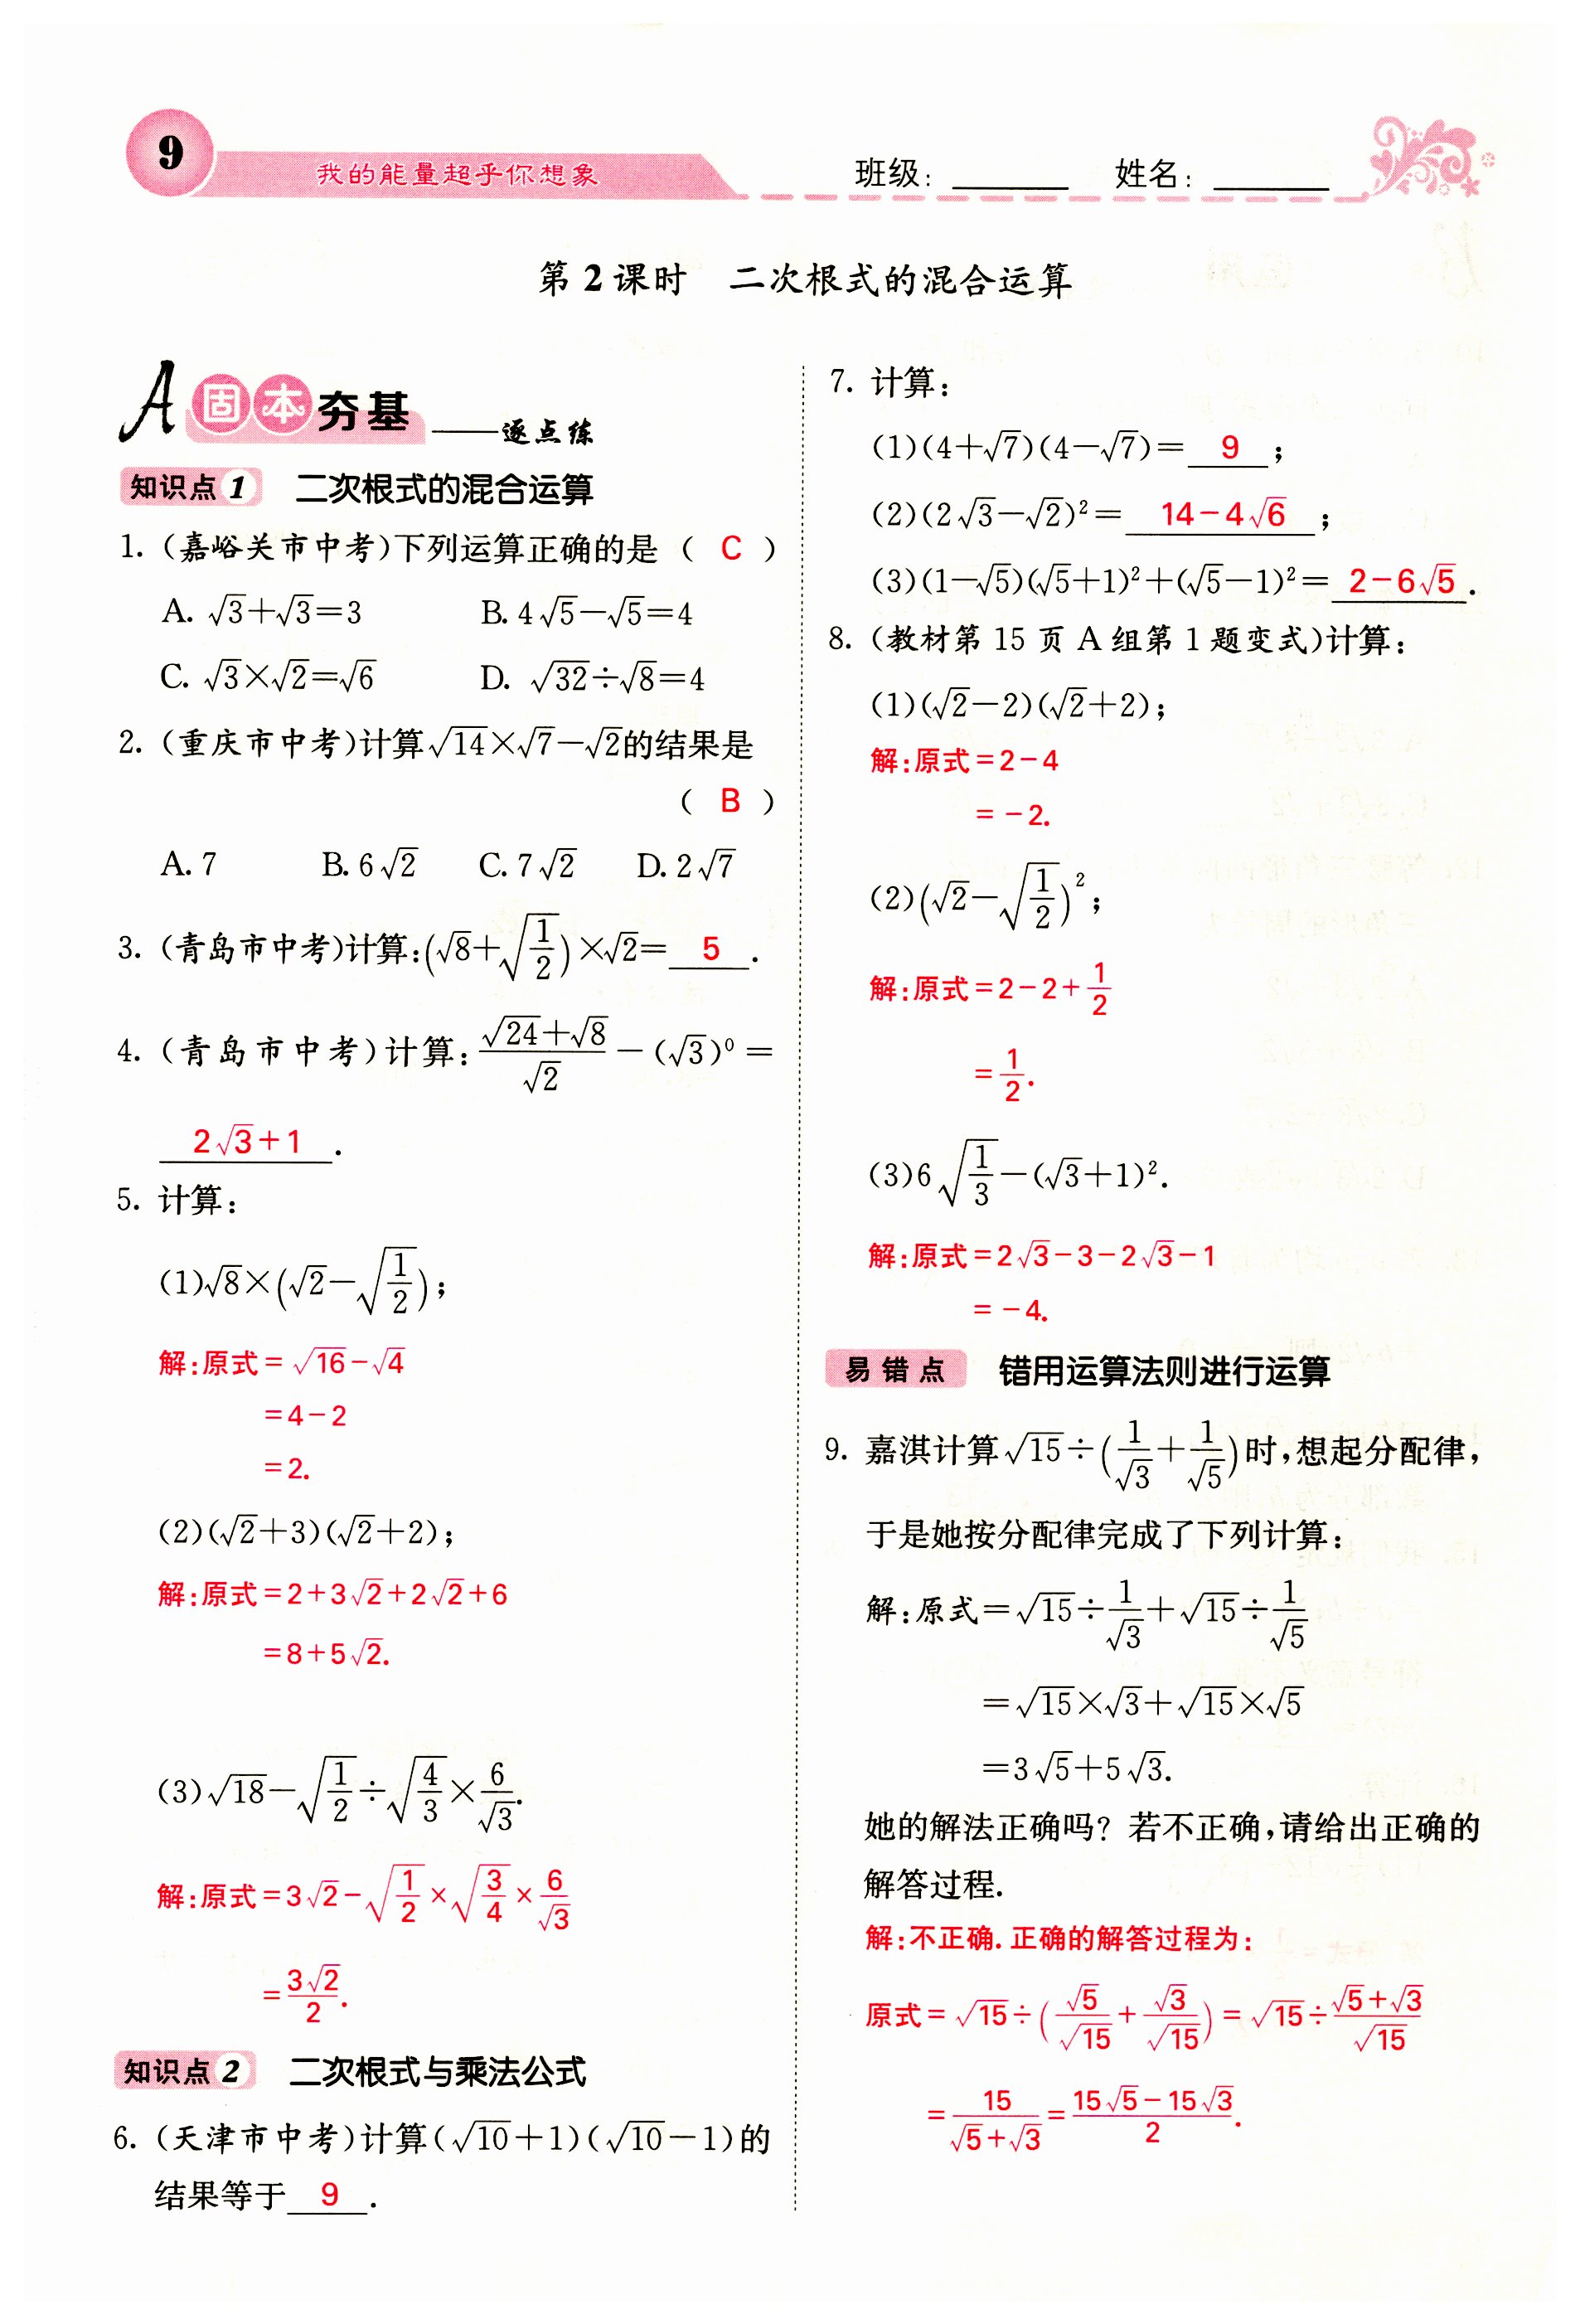 9
我的能量超乎你想象
班级：______ 姓名：______
第2课时 二次根式的混合运算
A 固本夯基——逐点练
知识点1 二次根式的混合运算
1.（嘉峪关市中考）下列运算正确的是（ C ）
A. √3+√3=3 B. 4√5−√5=4
C. √3×√2=√6 D. √32÷√8=4
2.（重庆市中考）计算√14×√7−√2的结果是
（ B ）
A. 7 B. 6√2 C. 7√2 D. 2√7
3.（青岛市中考）计算：(√8+√(1/2))×√2= 5 .
4.（青岛市中考）计算：(√24+√8)/√2−(√3)⁰=
2√3+1 .
5. 计算：
(1)√8×(√2−√(1/2))；
解：原式=√16−√4
=4−2
=2.
(2)(√2+3)(√2+2)；
解：原式=2+3√2+2√2+6
=8+5√2.
(3)√18−√(1/2)÷√(4/3)×6/√3.
解：原式=3√2−√(1/2)×√(3/4)×6/√3
=3√2/2.
知识点2 二次根式与乘法公式
6.（天津市中考）计算(√10+1)(√10−1)的
结果等于 9 .
7. 计算：
(1)(4+√7)(4−√7)= 9 ；
(2)(2√3−√2)²= 14−4√6 ；
(3)(1−√5)(√5+1)²+(√5−1)²= 2−6√5 .
8.（教材第15页A组第1题变式）计算：
(1)(√2−2)(√2+2)；
解：原式=2−4
=−2.
(2)(√2−√(1/2))²；
解：原式=2−2+1/2
=1/2.
(3)6√(1/3)−(√3+1)².
解：原式=2√3−3−2√3−1
=−4.
易错点 错用运算法则进行运算
9. 嘉淇计算√15÷(1/√3+1/√5)时，想起分配律，
于是她按分配律完成了下列计算：
解：原式=√15÷1/√3+√15÷1/√5
=√15×√3+√15×√5
=3√5+5√3.
她的解法正确吗？若不正确，请给出正确的
解答过程.
解：不正确.正确的解答过程为：
原式=√15÷(√5/√15+√3/√15)=√15÷(√5+√3)/√15
=15/(√5+√3)=(15√5−15√3)/2.